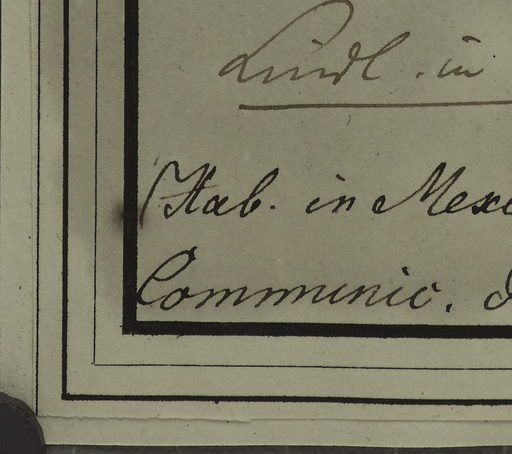 Lindl. in
Hab. in Mexi
Communic. d